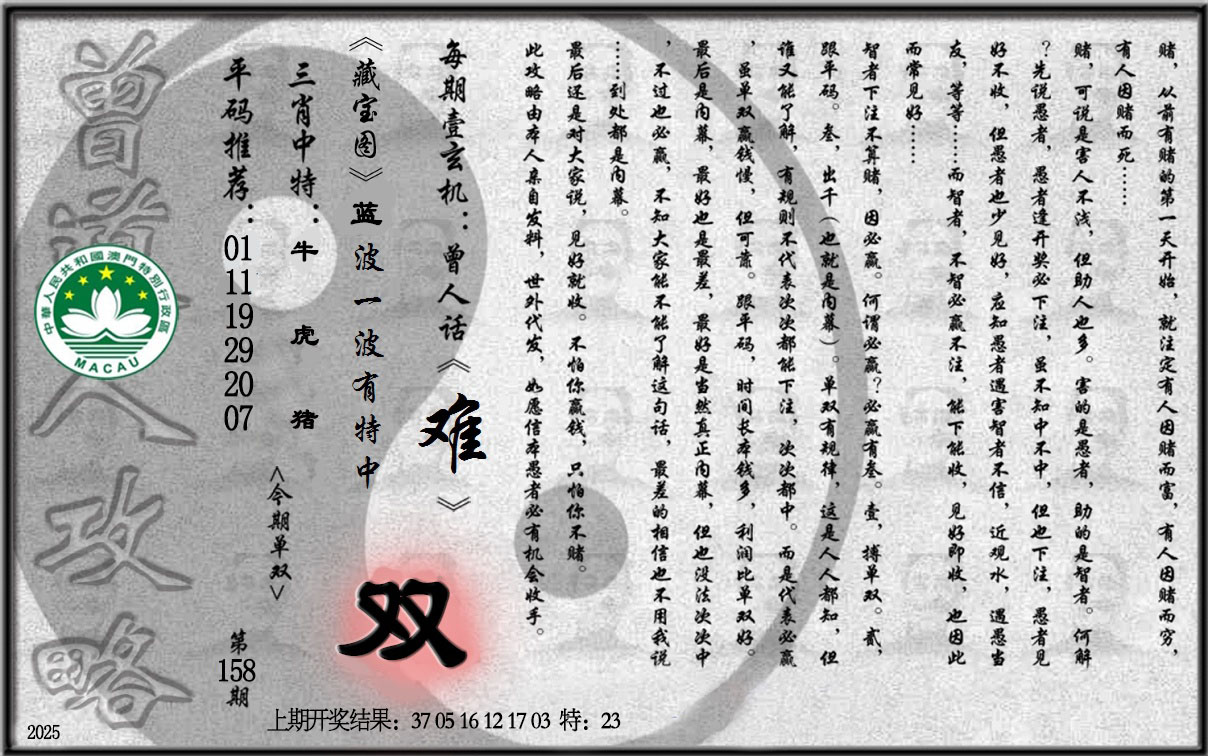 赌，从前有赌的第一天开始，就注定有人因赌而富，有人因赌而穷，
有人因赌而死……
赌，可说是害人不浅，但助人也多。害的是愚者，助的是智者。何解
？先说愚者，愚者逢开奖必下注，虽不知中不中，但也下注，愚者见
好不收，但愚者也少见好，应知愚者遇害智者不信，近观水，遇愚当
友，等等……而智者，不智必赢不注，能下能收，见好即收，也因此
而常见好……
智者下注不算赌，因必赢。何谓必赢？必赢有叁。壹，搏单双。贰，
跟平码。叁，出千（也就是内幕）。单双有规律，这是人人都知，但
谁又能了解，有规则不代表次次都能下注，次次都中。而是代表必赢
，虽单双赢钱慢，但可靠。跟平码，时间长本钱多，利润比单双好。
最后是内幕，最好也是最差，最好是当然真正内幕，但也没法次次中
，不过也必赢，不知大家能不能了解这句话，最差的相信也不用我说
……到处都是内幕。
最后还是对大家说，见好就收。不怕你赢钱，只怕你不赌。
此攻略由本人亲自发料，世外代发，如愿信本愚者必有机会收手。
每期壹玄机：曾人话《难》
双
《藏宝图》蓝波一波有特中
三肖中特：牛 虎 猪
<今期单双>
平码推荐：01 11 19 29 20 07
第158期
曾道人攻略
中華人民共和國澳門特別行政區
MACAU
上期开奖结果：37 05 16 12 17 03 特：23
2025